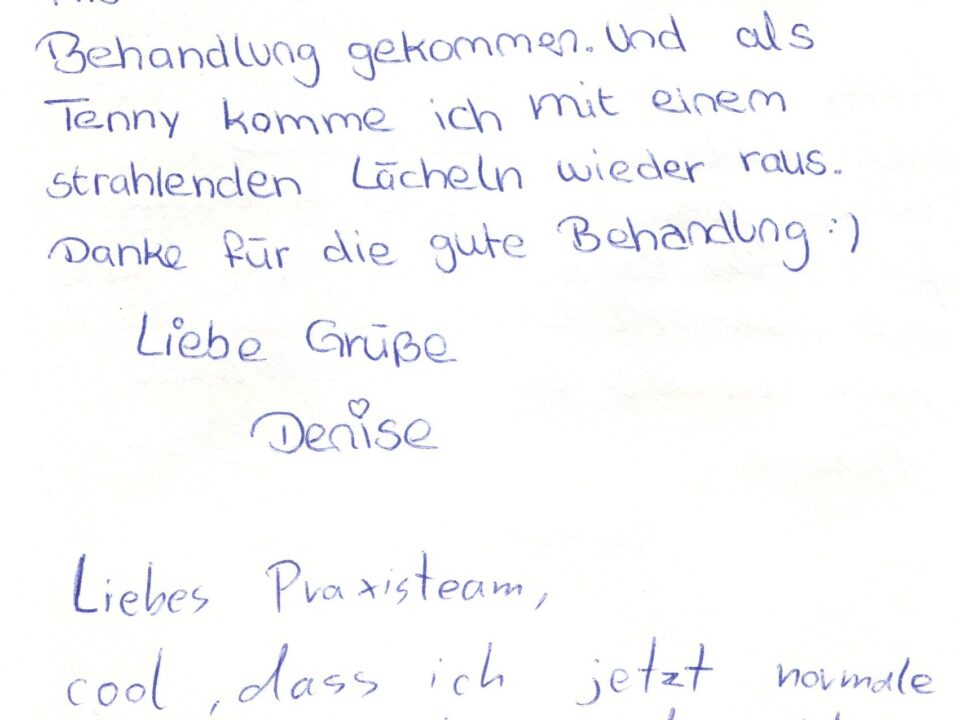 Behandlung gekommen. Und als
Tenny komme ich mit einem
strahlenden Lächeln wieder raus.
Danke für die gute Behandlung :)
Liebe Grüße
Denise
Liebes Praxisteam,
cool, dass ich jetzt normale